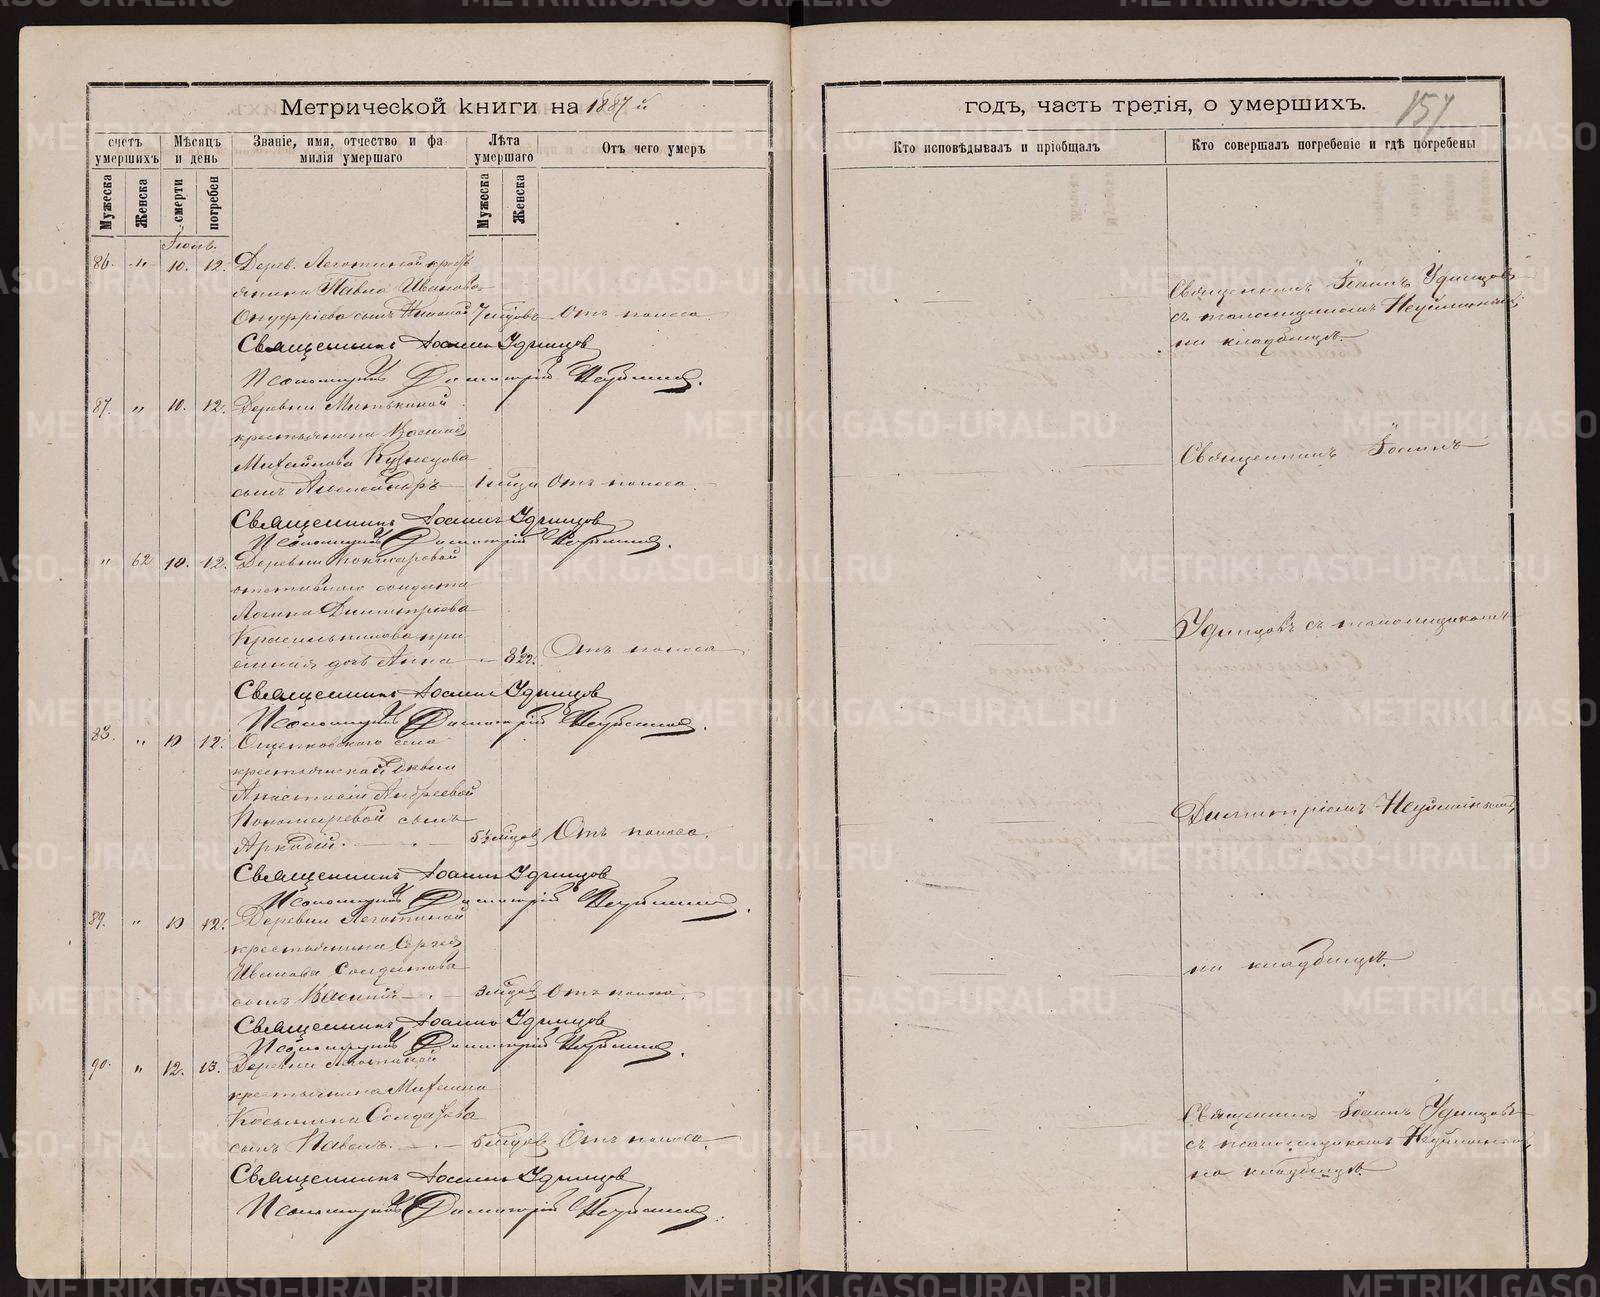 Метрической книги на 1887 й
годъ, часть третія, о умершихъ.
157
счетъ умершихъ
Мѣсяцъ и день
Званіе, имя, отчество и фамилія умершаго
Лѣта умершаго
Отъ чего умеръ
Кто исповѣдывалъ и пріобщалъ
Кто совершалъ погребеніе и гдѣ погребены
Мужеска
Женска
смерти
погребен
Мужеска
Женска
Іюль.
86. " 10. 12. Дерев. Леготиной крестьянина Павла Иванова
Онуфріева сынъ Николай 7 мѣсцовъ Отъ поноса.
Священникъ Іоаннъ Удинцовъ
Псаломщикъ Димитрій Неуйминъ.
87. " 10. 12. Деревни
крестьянина Василія
Михайлова Кузнецова
сынъ Александръ 1 мѣсца Отъ поноса.
Священникъ Іоаннъ Удинцовъ
Псаломщикъ Димитрій Неуйминъ.
" 62 10. 12. Деревни
отставного солдата
Логина Димитріева
Красильникова прі
емная дочь Анна Отъ поноса
Священникъ Іоаннъ Удинцовъ
Псаломщикъ Димитрій Неуйминъ.
88. " 10 12. села
крестьянской дѣвки
Анастасіи Андреевой
Пономаревой сынъ
Аркадій. 5½ мѣсцов Отъ поноса.
Священникъ Іоаннъ Удинцовъ
Псаломщикъ Димитрій Неуйминъ.
89. " 10 12. Деревни Леготиной
крестьянина Сергея
Иванова Солдатова
сынъ Василій 3 мѣсцов Отъ поноса.
Священникъ Іоаннъ Удинцовъ
Псаломщикъ Димитрій Неуйминъ.
90. " 12. 13. Деревни Леготиной
крестьянина Михаила
Косьмина Солдатова
сынъ Павелъ. 5 мѣсцов Отъ поноса.
Священникъ Іоаннъ Удинцовъ
Псаломщикъ Димитрій Неуйминъ.
Священникъ Іоаннъ Удинцовъ
съ псаломщикомъ Неуйминымъ
на кладбищѣ.
Священникъ Іоаннъ
Удинцовъ съ псаломщикомъ
Димитріемъ Неуйминымъ
на кладбищѣ.
Священникъ Іоаннъ Удинцовъ
съ псаломщикомъ Неуйминымъ
на кладбищѣ.
METRIKI.GASO-URAL.RU